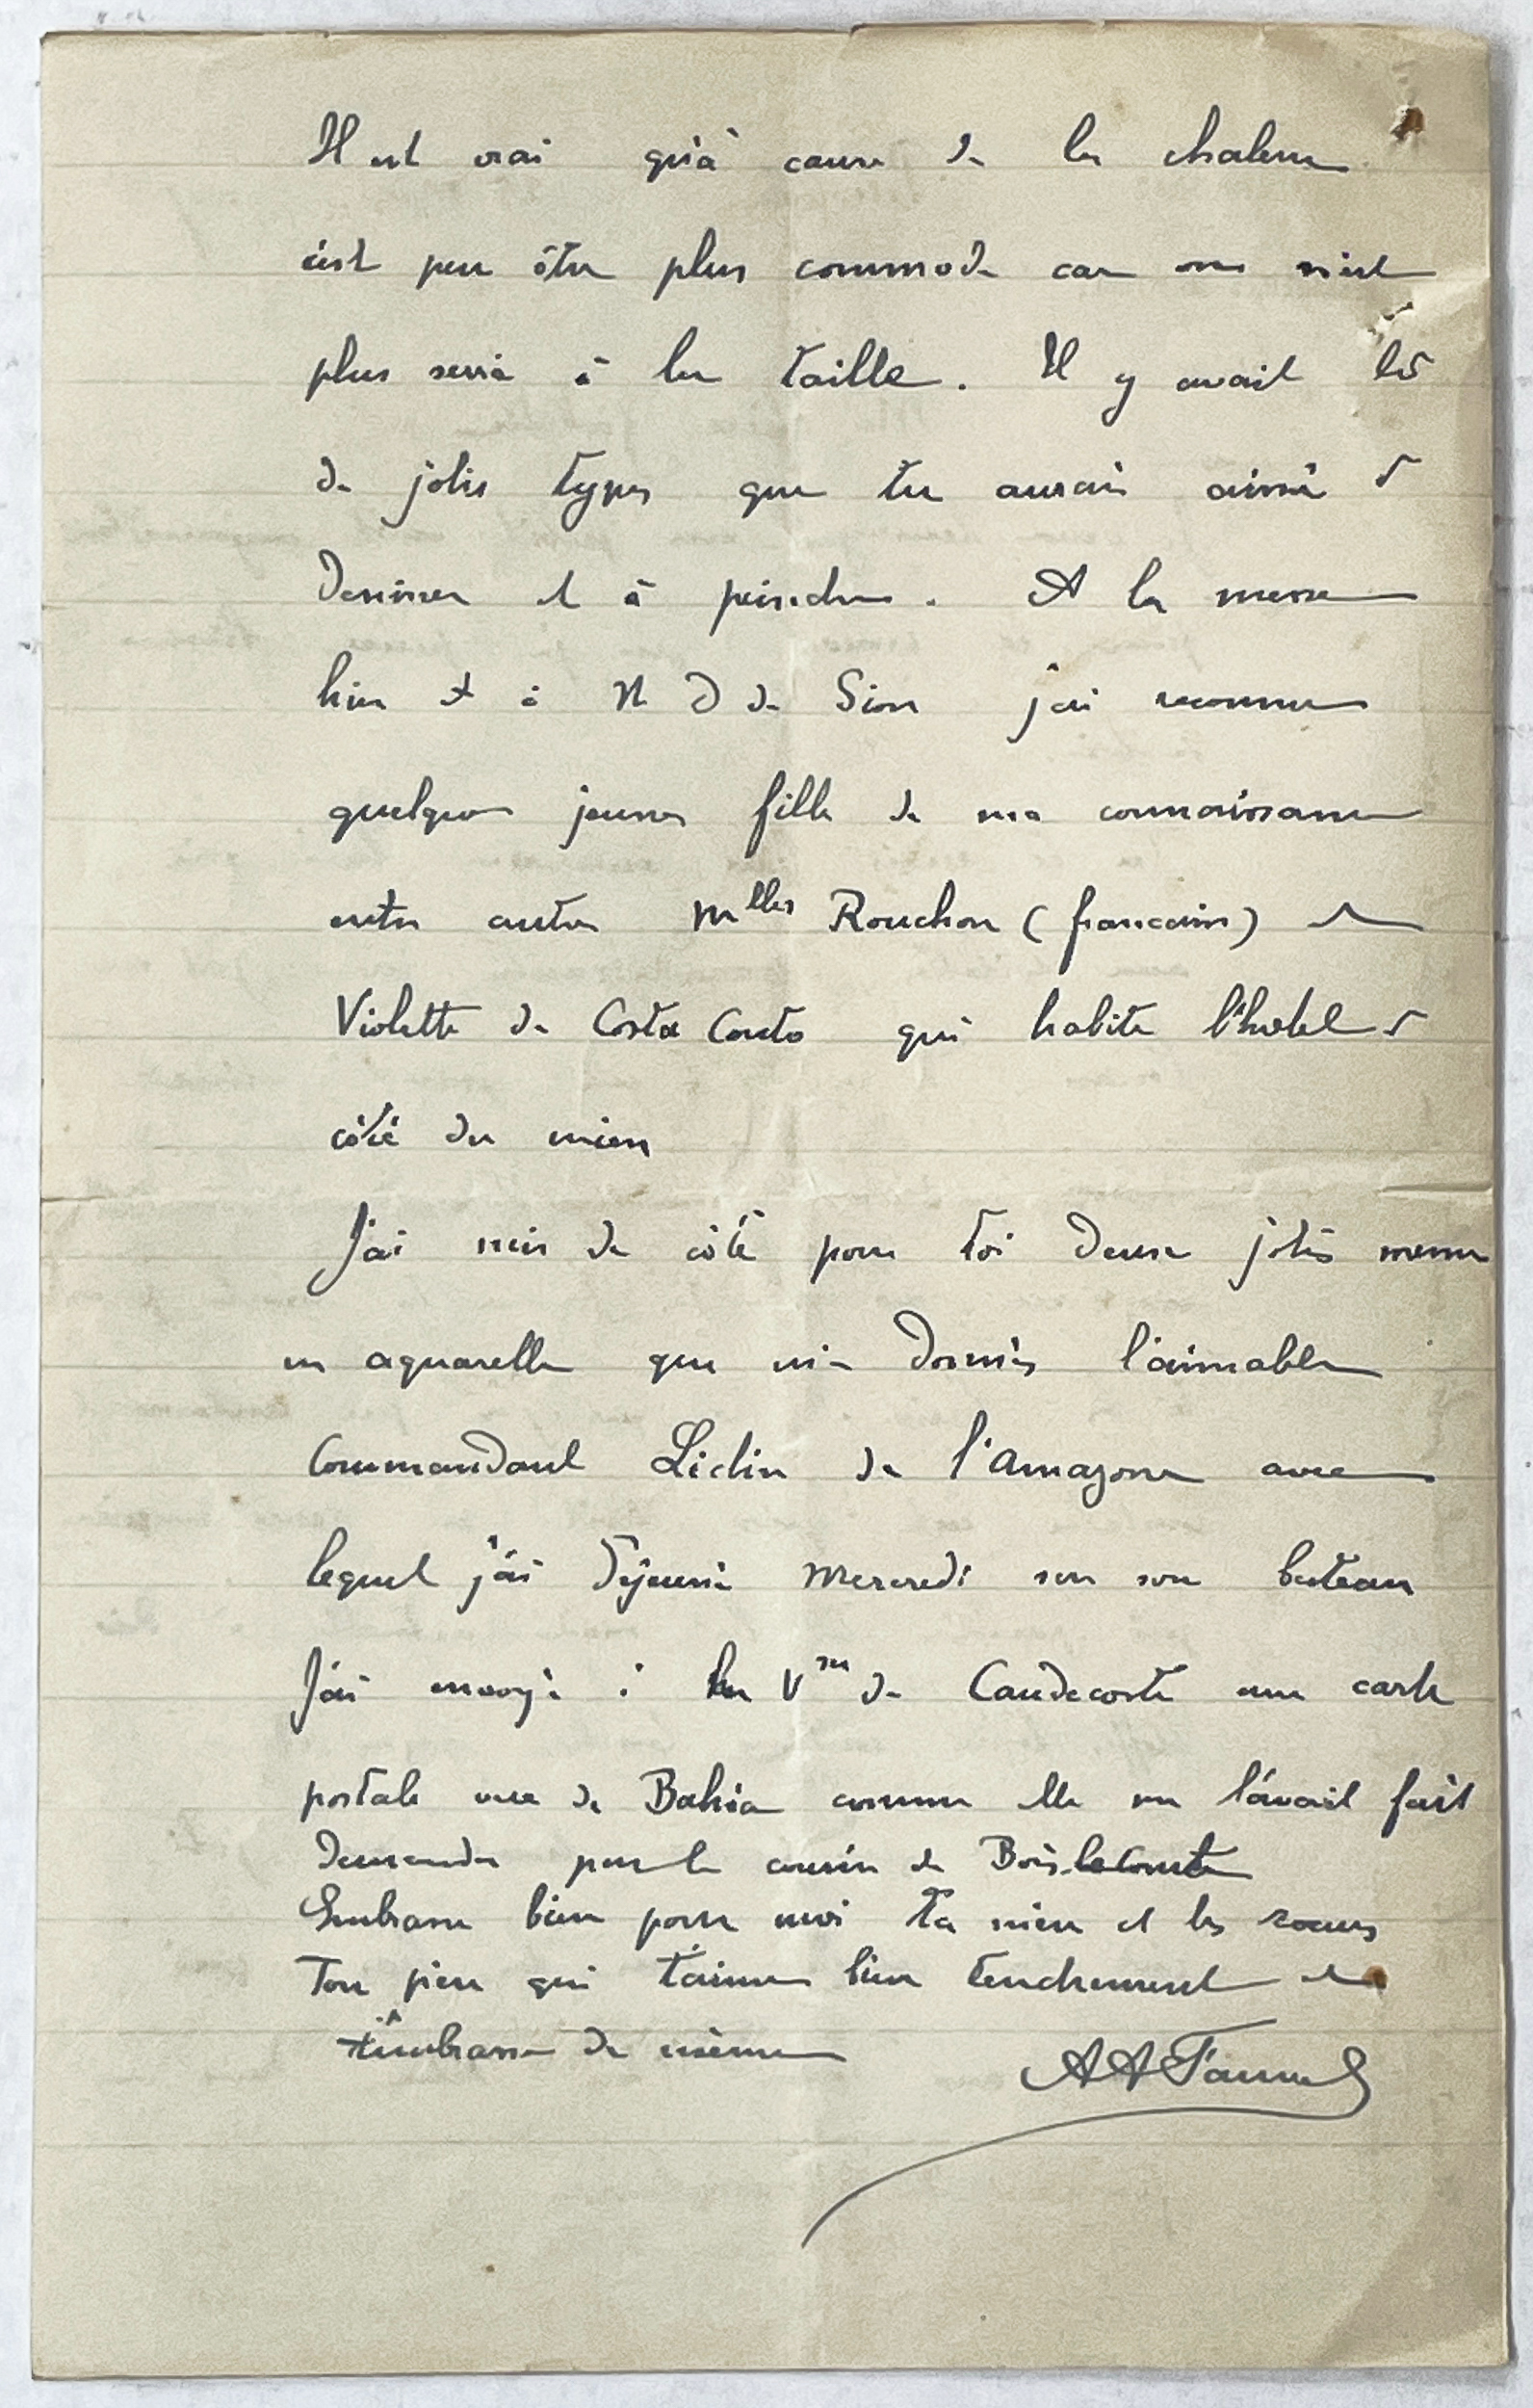 Il est vrai qu'à cause de la chaleur
c'est peu être plus commode car on n'est
plus serré à la taille. Il y avait là
de jolis types que tu aurais aimé à
dessiner et à peindre. A la messe
hier à N D de Sion j'ai reconnu
quelques jeunes filles de ma connaissance
entre autres Mlles Rouchon (francaises) et
Violette de Costa Couto qui habite l'hotel à
côté du mien
J'ai mis de côté pour toi deux jolis menus
en aquarelle que m'a donnés l'aimable
Commandant Lidin de l'Amazone avec
lequel j'ai déjeuné mercredi sur son bateau
J'ai envoyé à la Vsse de Caudecoste une carte
postale vue de Bahia comme elle me l'avait fait
demander par le cousin de Bois-le Comte
Embrasse bien pour moi ta mère et les soeurs
Ton père qui t'aime bien tendrement et
t'embrasse de même